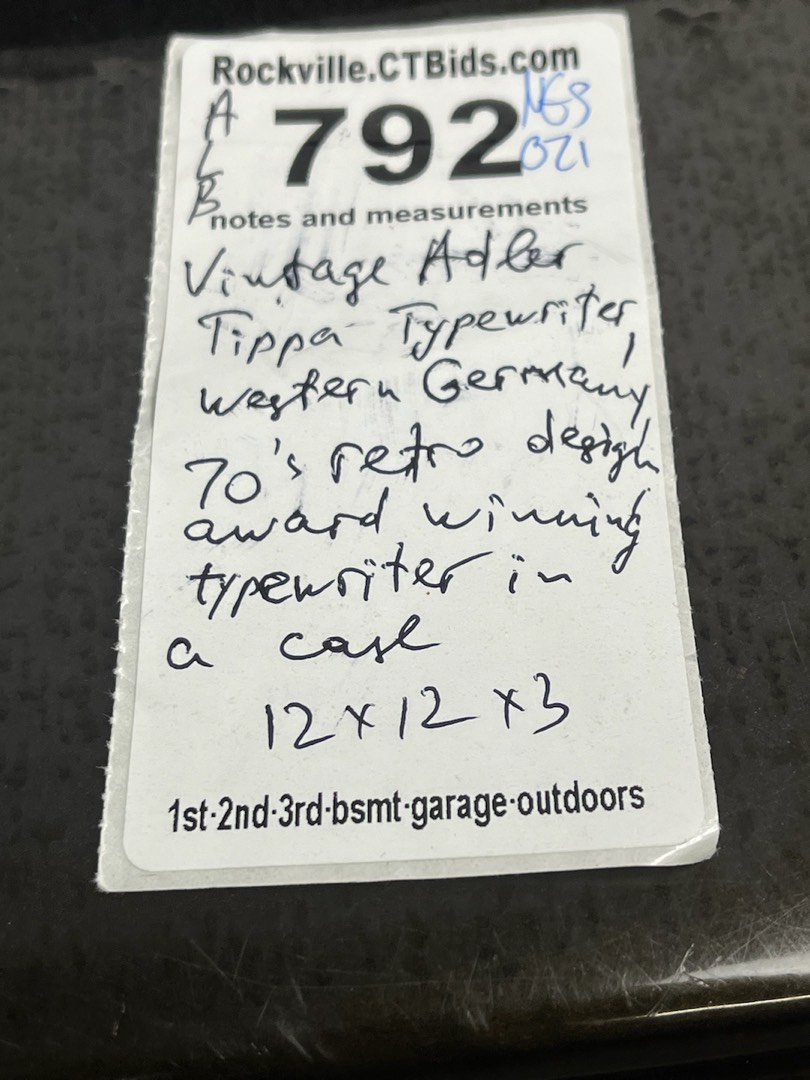 Rockville.CTBids.com
A
L
B
792
NGS
021
notes and measurements
Vintage Adler
Tippa Typewriter,
western Germany
70's retro design
award winning
typewriter in
a case
12 x 12 x 3
1st·2nd·3rd·bsmt·garage·outdoors